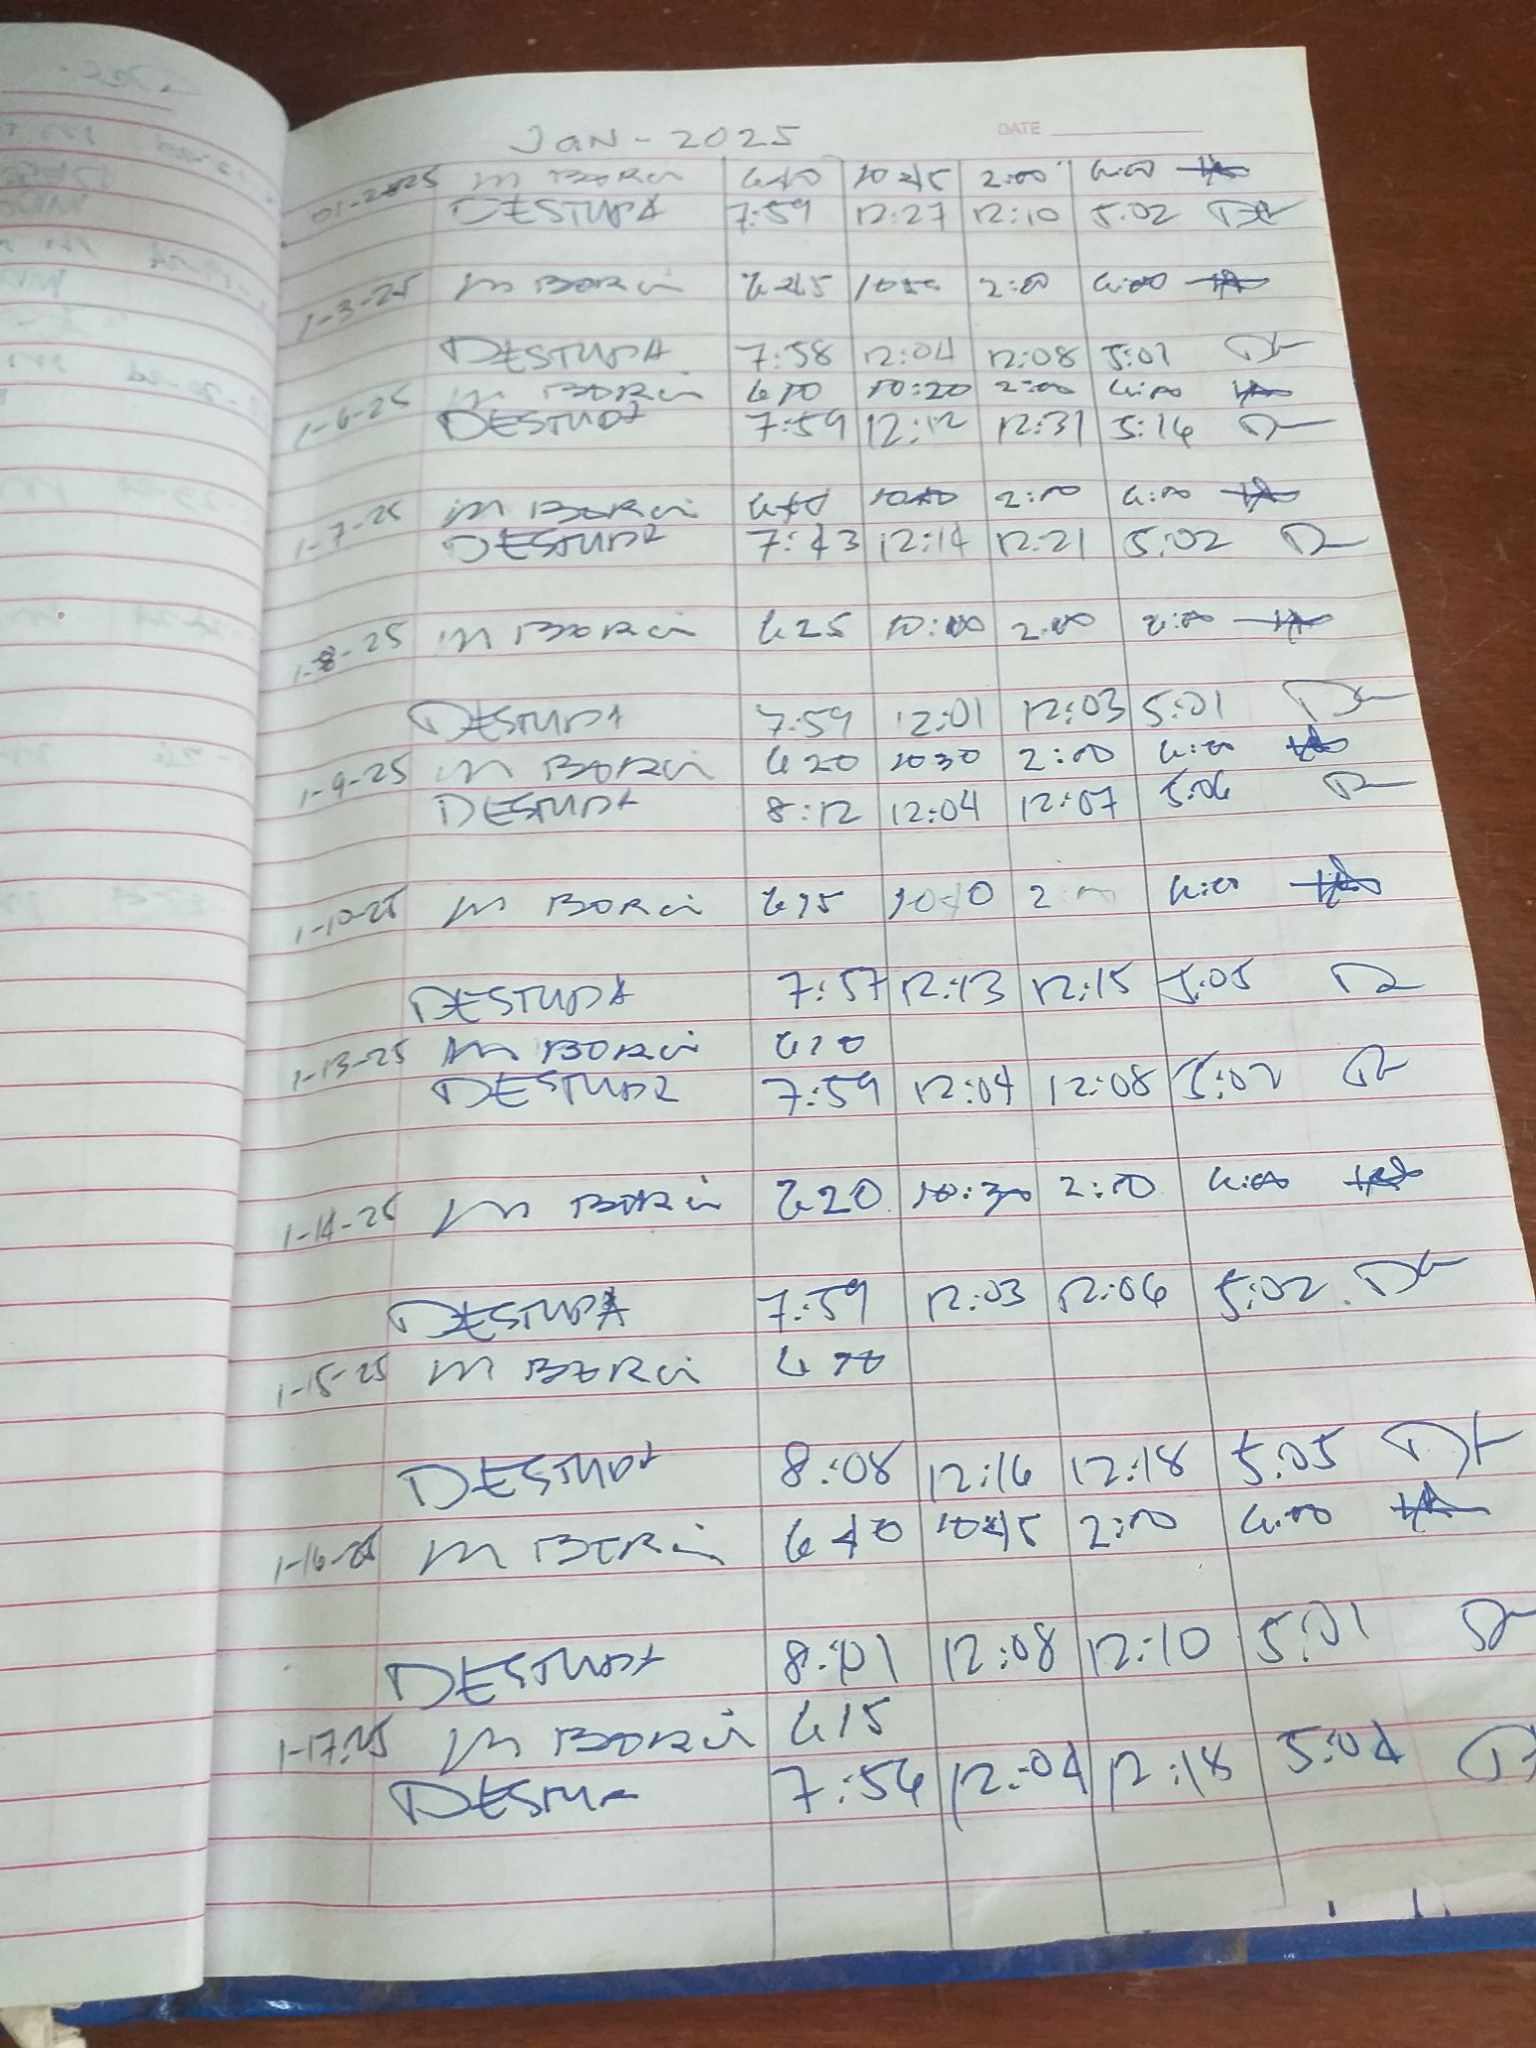 JAN - 2025
DATE
01-2-2025 M BORCI 640 1045 2:00 4:00
DESTUPA 7:59 12:27 12:10 5:02
1-3-25 M BORCI 645 1050 2:00 4:00
DESTUPA 7:58 12:04 12:08 5:01
1-6-25 M BORCI 610 10:20 2:00 4:00
DESTUPA 7:59 12:12 12:31 5:16
1-7-25 M BORCI 640 1040 2:00 4:00
DESTUPA 7:43 12:14 12:21 5:02
1-8-25 M BORCI 625 10:00 2:00 4:00
DESTUPA 7:59 12:01 12:03 5:01
1-9-25 M BORCI 620 1030 2:00 4:00
DESTUPA 8:12 12:04 12:07 5:06
1-10-25 M BORCI 615 1040 2:00 4:00
DESTUPA 7:57 12:13 12:15 5:05
1-13-25 M BORCI 620
DESTUPA 7:59 12:04 12:08 5:02
1-14-25 M BORCI 620 10:30 2:00 4:00
DESTUPA 7:59 12:03 12:06 5:02
1-15-25 M BORCI 6
DESTUPA 8:08 12:16 12:18 5:05
1-16-25 M BORCI 640 1045 2:00 4:00
DESTUPA 8:01 12:08 12:10 5:01
1-17-25 M BORCI 615
DESTUPA 7:56 12:04 12:18 5:04